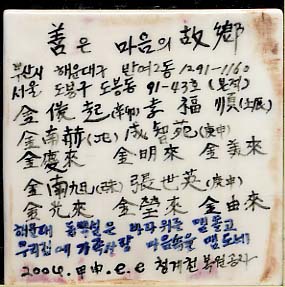 善은 마음의 故鄉
부산시 해운대구 반여2동 1291-1160
서울 도봉구 도봉동 91-43호 (본적)
金俊起(辛卯) 李福順(壬辰)
金南赫 成智苑(庚申)
金慶來 金明來 金美來
金南旭 張世英(庚申)
金光來 金瑩來 金由來
해운대 동백섬은 바다위를 맴돌고
우리집에 가족사랑 마음속을 맴도네
2004. 甲申. 2. 2 청계천 복원공사